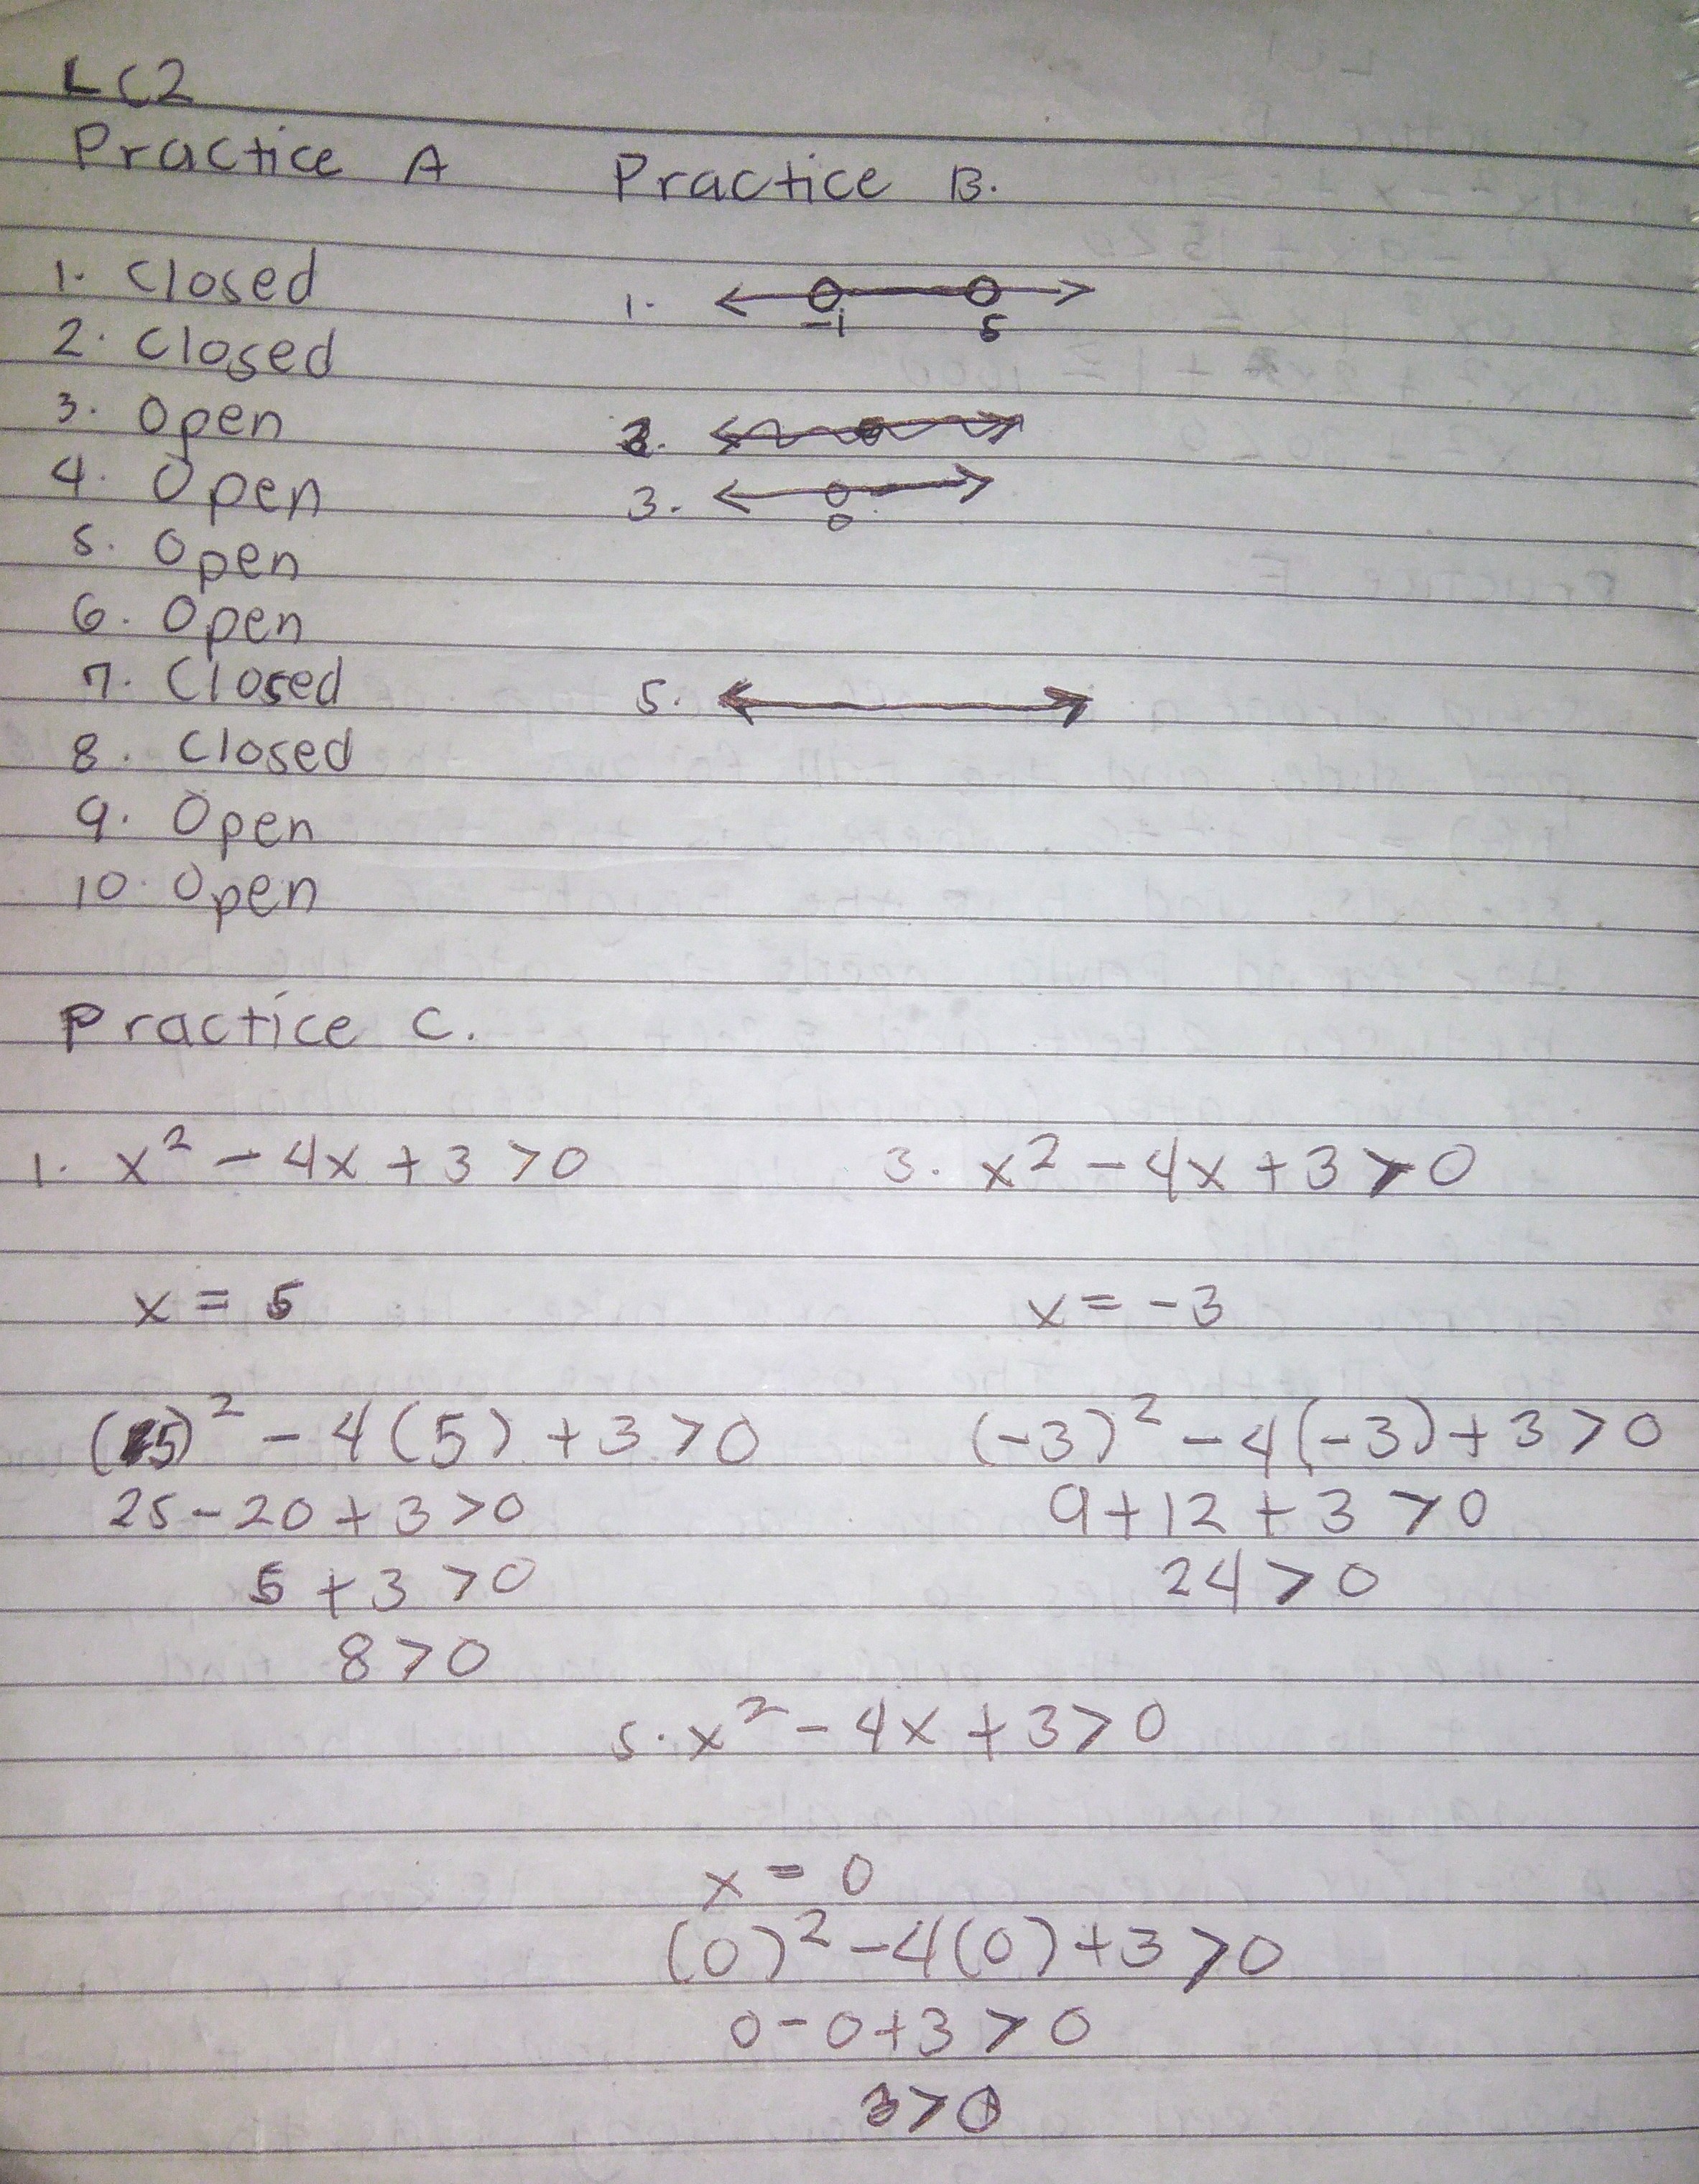 LC2
Practice A
1. Closed
2. Closed
3. Open
4. Open
5. Open
6. Open
7. Closed
8. Closed
9. Open
10. Open
Practice B.
1.
-1 5
2.
3.
0
5.
Practice C.
1. x² - 4x + 3 > 0
x = 5
(5)² - 4(5) + 3 > 0
25 - 20 + 3 > 0
5 + 3 > 0
8 > 0
3. x² - 4x + 3 > 0
x = -3
(-3)² - 4(-3) + 3 > 0
9 + 12 + 3 > 0
24 > 0
5. x² - 4x + 3 > 0
x = 0
(0)² - 4(0) + 3 > 0
0 - 0 + 3 > 0
3 > 0